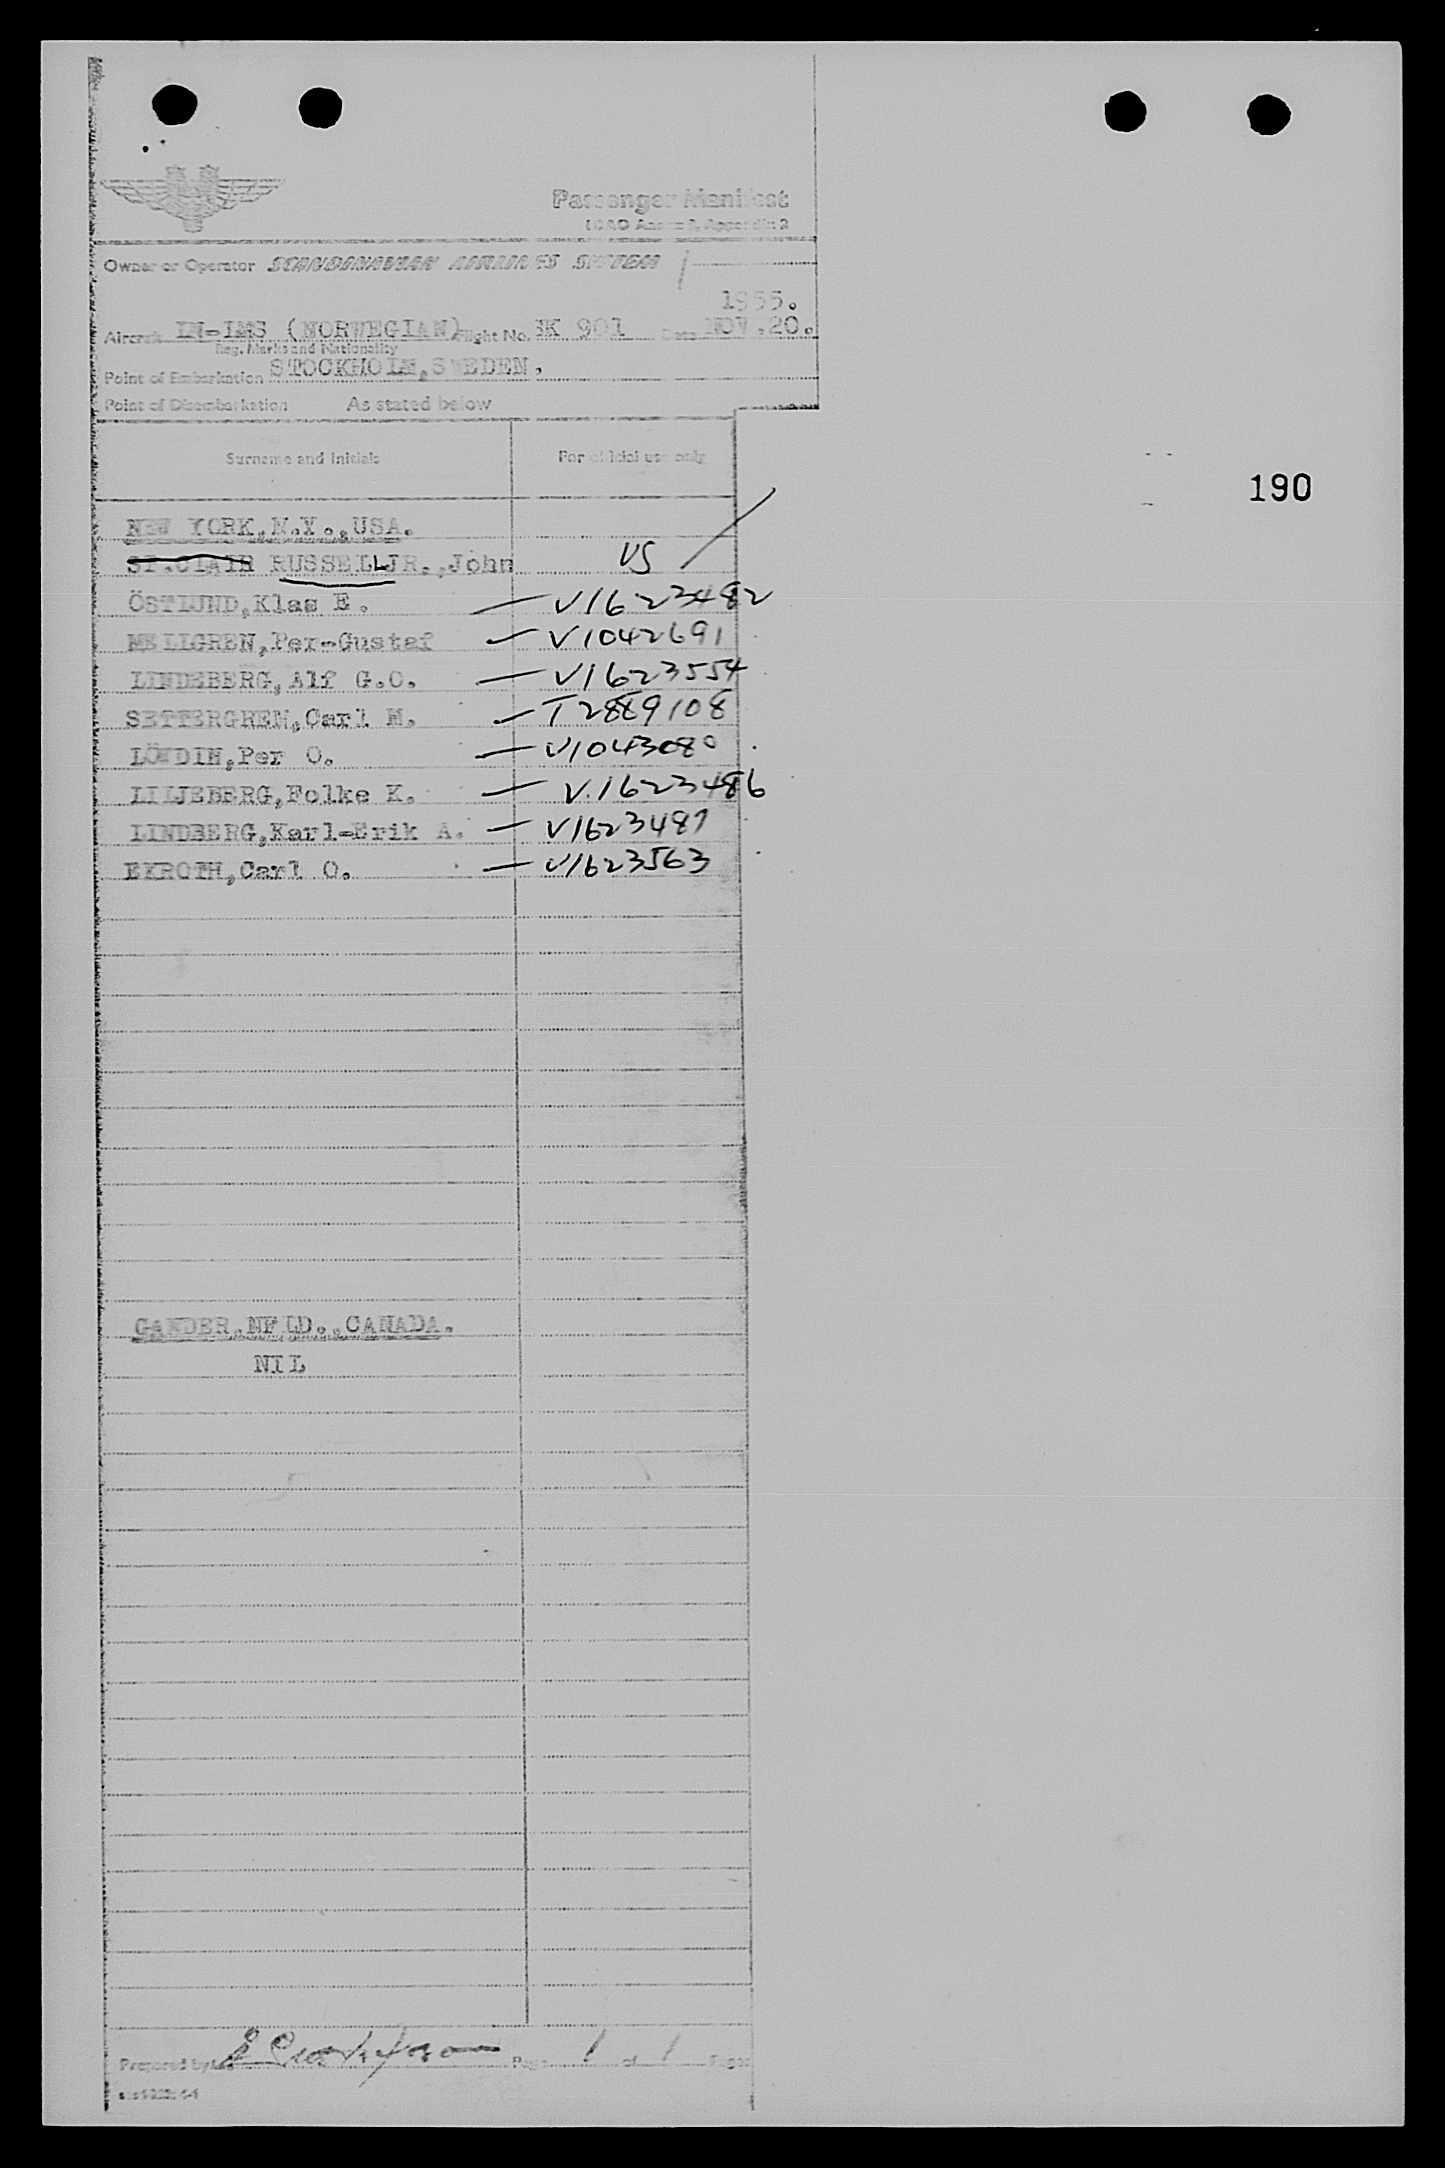 Passenger Manifest
ICAO Annex 9, Appendix 2
Owner or Operator SCANDINAVIAN AIRLINES SYSTEM
1955.
Aircraft LN-LMS (NORWEGIAN) Flight No. SK 901 Date NOV.20.
Reg. Marks and Nationality
Point of Embarkation STOCKHOLM,SWEDEN.
Point of Disembarkation As stated below
Surname and Initials For official use only
190
NEW YORK,N.Y.,USA.
ST.CLAIR RUSSELL JR.,John US
ÖSTLUND,Klas E. — V1623482
MELLGREN,Per-Gustaf — V1042691
LINDEBERG,Alf G.O. — V1623554
SETTERGREN,Carl M. — T2889108
LÖWDIN,Per O. — V1043080
LILJEBERG,Folke K. — V1623486
LINDBERG,Karl-Erik A. — V1623487
EKROTH,Carl O. — V1623563
GANDER,NFLD.,CANADA.
NIL
Prepared by Page 1 of 1 Pages